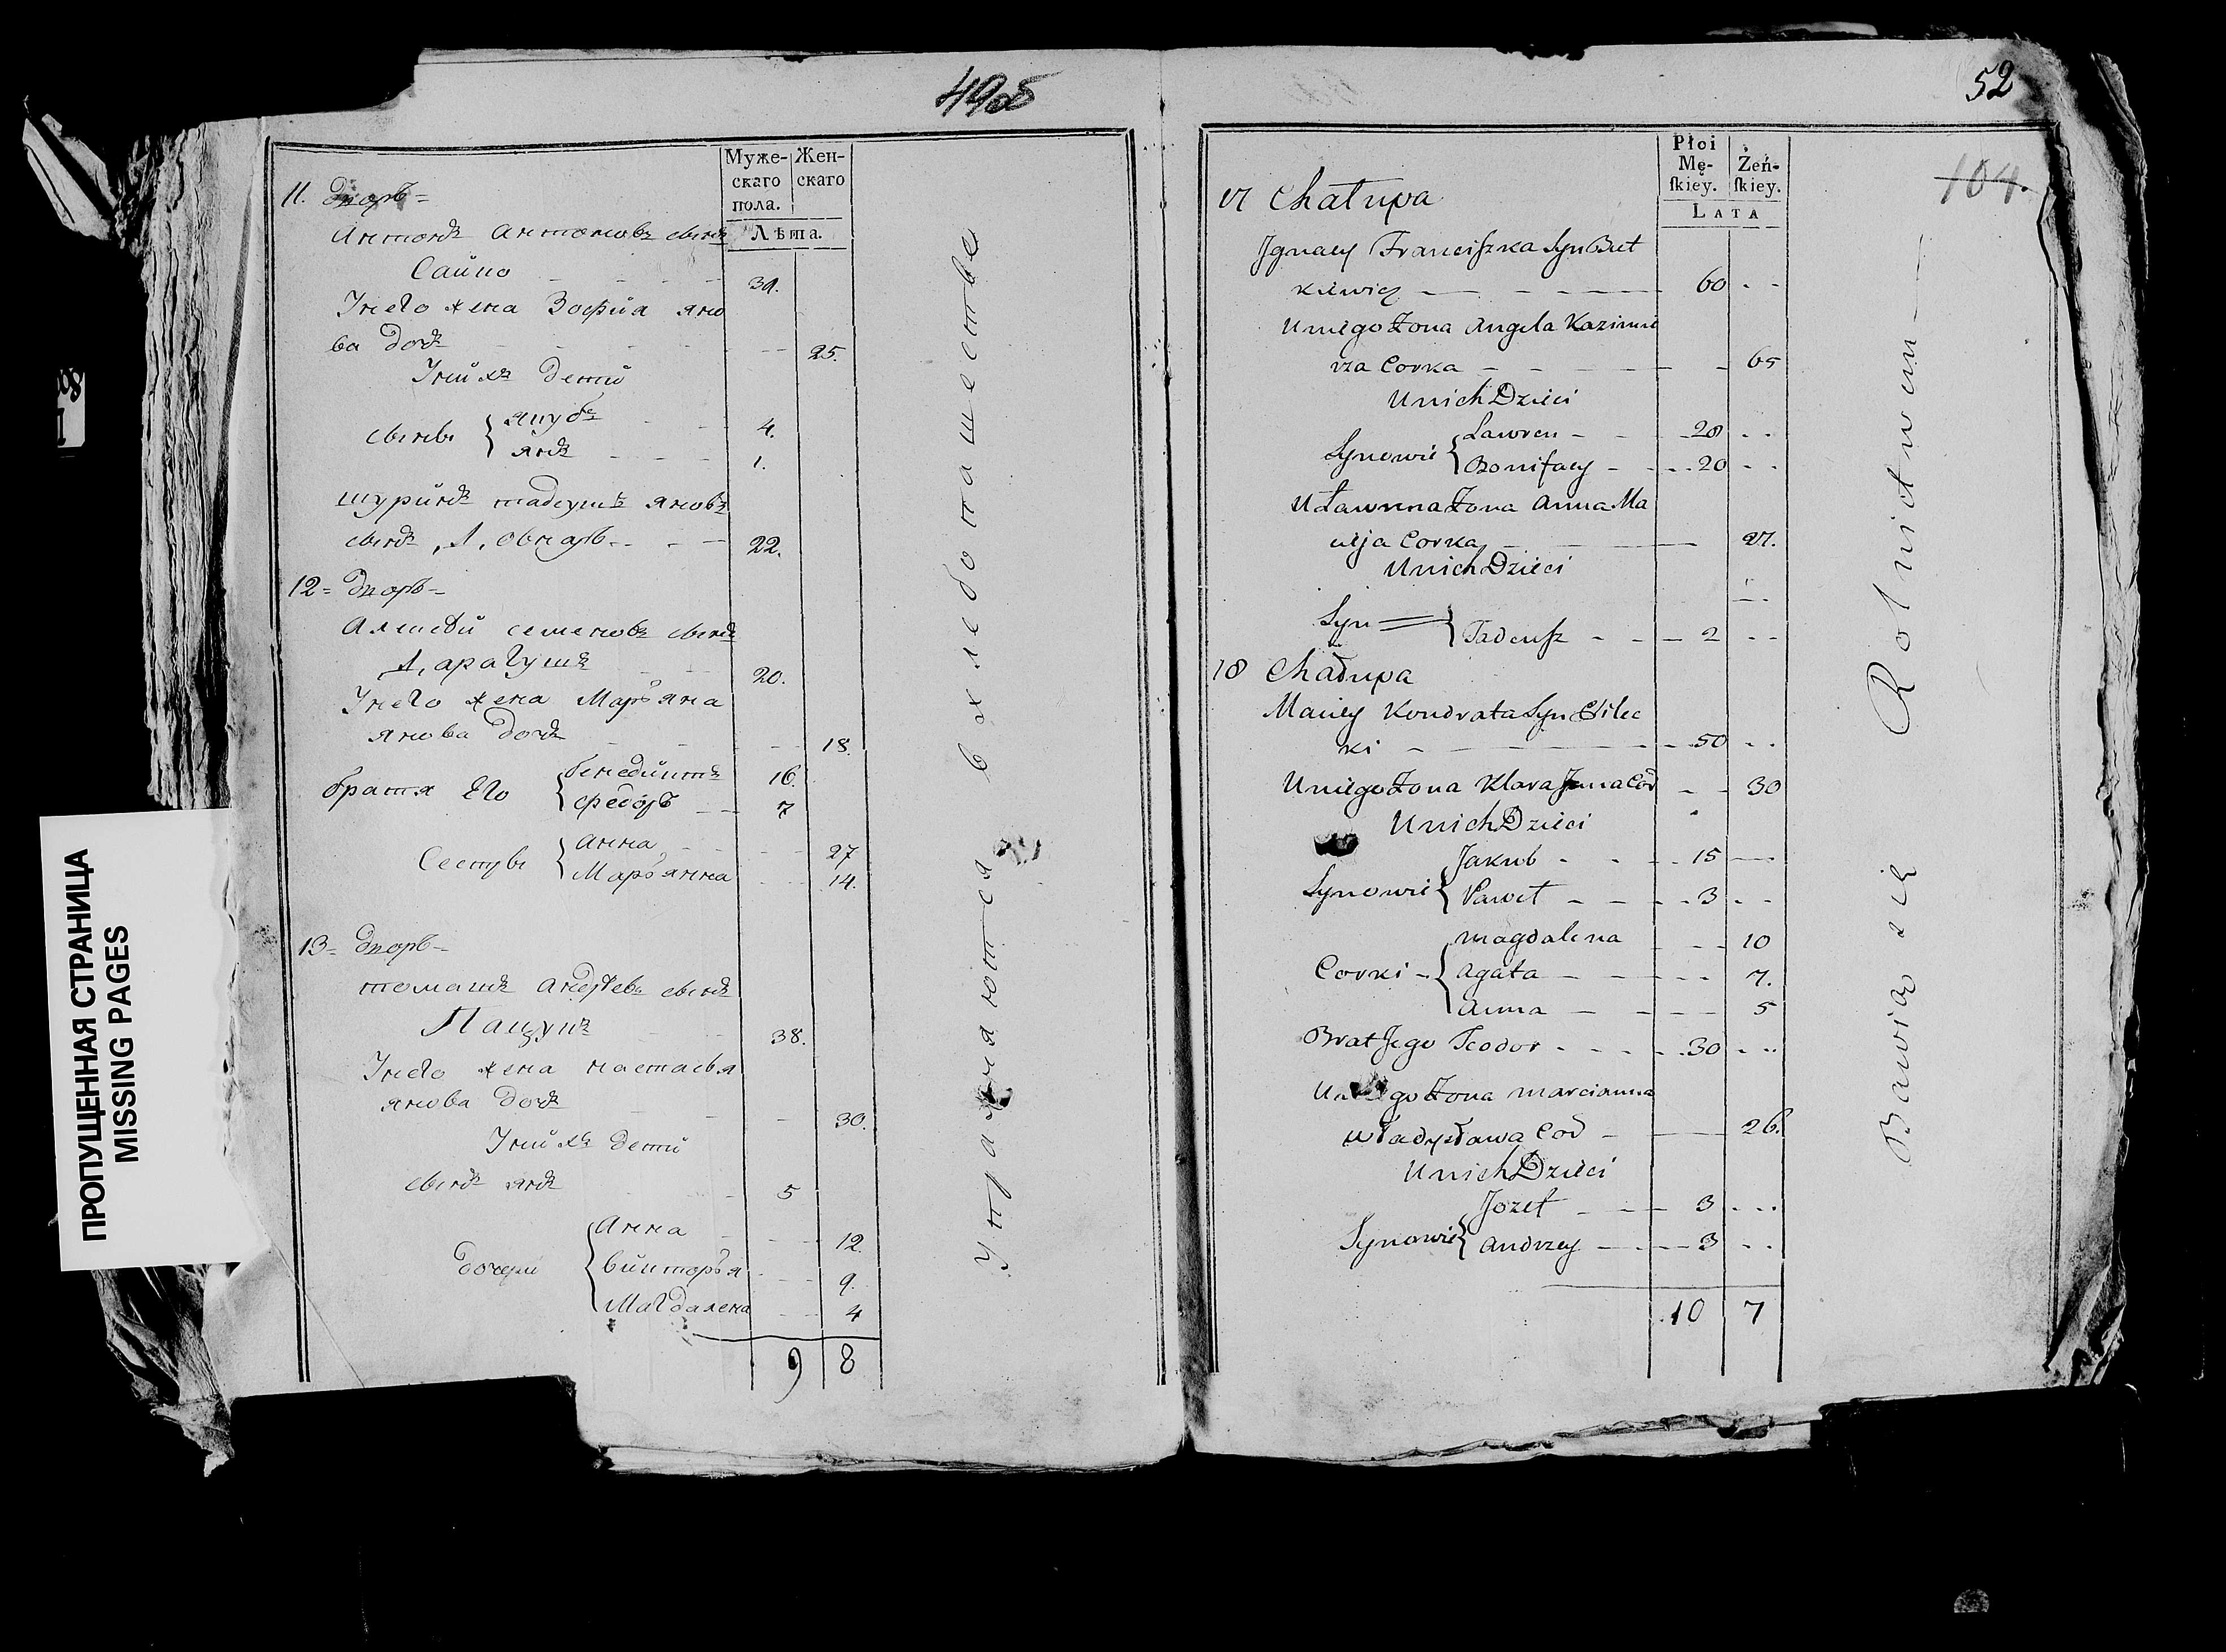 49об
Муже- Жен-
скаго скаго
пола.
Лѣта.
11. Дворъ =
Антонъ Антоновъ сынъ
Сайко 31.
У него жена Зофйя яно
ва дочь 25.
У нйхъ детй
сыны якубъ 4.
янъ 1.
шурйнъ тадеушъ яновъ
сынъ 22.
12 = Дворъ =
Алексѣй семеновъ сынъ
20.
У него жена Марьяна
янова дочь 18.
братя Его бенедйктъ 16.
федоръ 7
Сестры анна 27
Марьянна 14.
13 = Дворъ =
томашъ андрѣевъ сынъ
Пацукъ 38.
У него жена настасья
янова дочь 30.
У нйхъ детй
сынъ янъ 5
дочерй Анна 12.
вйкторья 9.
Магдалена 4
9 8
Упражняются в хлебопашестве
ПРОПУЩЕННАЯ СТРАНИЦА
MISSING PAGES
52
104.
Płci
Mę- Żeń-
ſkiey. ſkiey.
LATA
17 Chałupa
Jgnacy Franciszka Syn But
kiewicz 60
U niego Zona Angela Kazimie
rza Corka 65
U nich Dzieci
Synowie Lawren 28
Bonifacy 20
U Lawrena Zona Anna Ma
cieja Corka 27.
U nich Dzieci
Syn Tadeusz 2
18 Chałupa
Maciey Kondrata Syn
ki 50
U niego Zona Klara Jana Cor 30
U nich Dzieci
Synowie Jakub 15
Paweł 3
Corki Magdalena 10
Agata 7.
Anna 5
Brat Jego Teodor 30
U niego Zona Marcianna
Władysława Cor 26.
U nich Dzieci
Synowie Jozef 3
Andrzey 3
10 7
Bawią się Rolnictwem